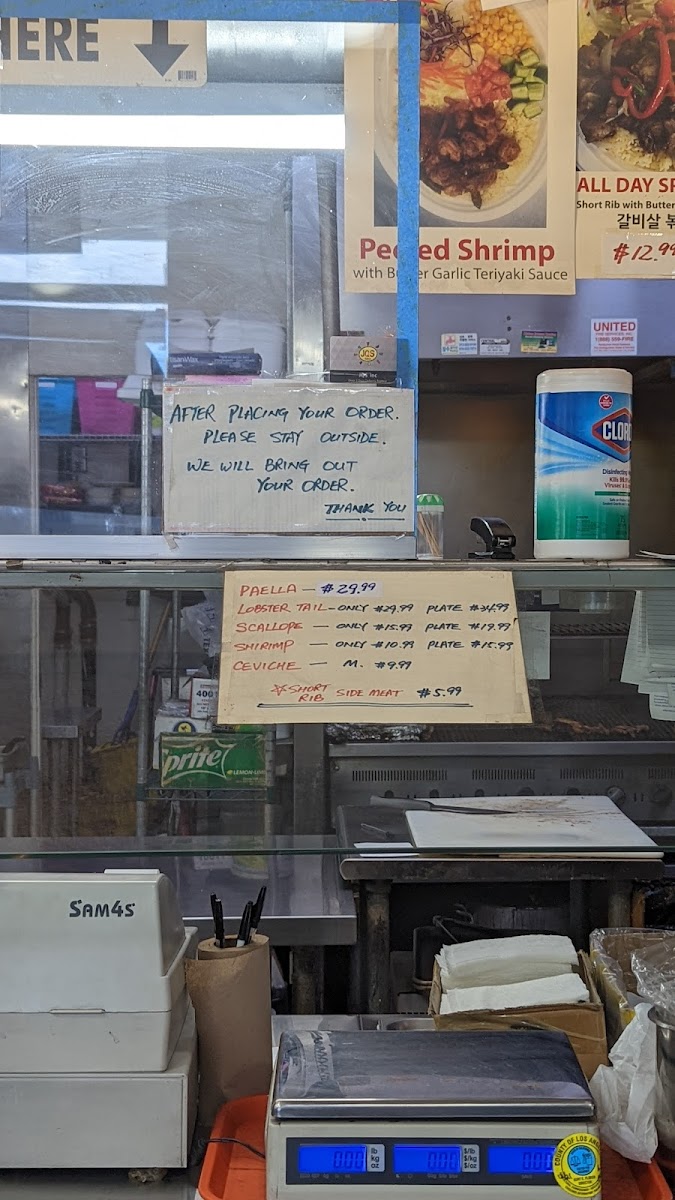 HERE
Peeled Shrimp
with Butter Garlic Teriyaki Sauce
ALL DAY
Short Rib with Butter
갈비살
$12.99
UNITED
AFTER PLACING YOUR ORDER.
PLEASE STAY OUTSIDE.
WE WILL BRING OUT
YOUR ORDER.
THANK YOU
CLOR
Disinfecting
Kills 99.9
Viruses &
PAELLA — $29.99
LOBSTER TAIL - ONLY $29.99 PLATE $34.99
SCALLOPE — ONLY $15.99 PLATE $19.99
SHIRIMP — ONLY $10.99 PLATE $15.99
CEVICHE — M. $9.99
☆SHORT RIB SIDE MEAT $5.99
400
prite
LEMON-LIM
SAM4S
0.00 lb kg oz 0.00 $/lb $/kg $/oz 0.00
COUNTY OF LOS ANGE